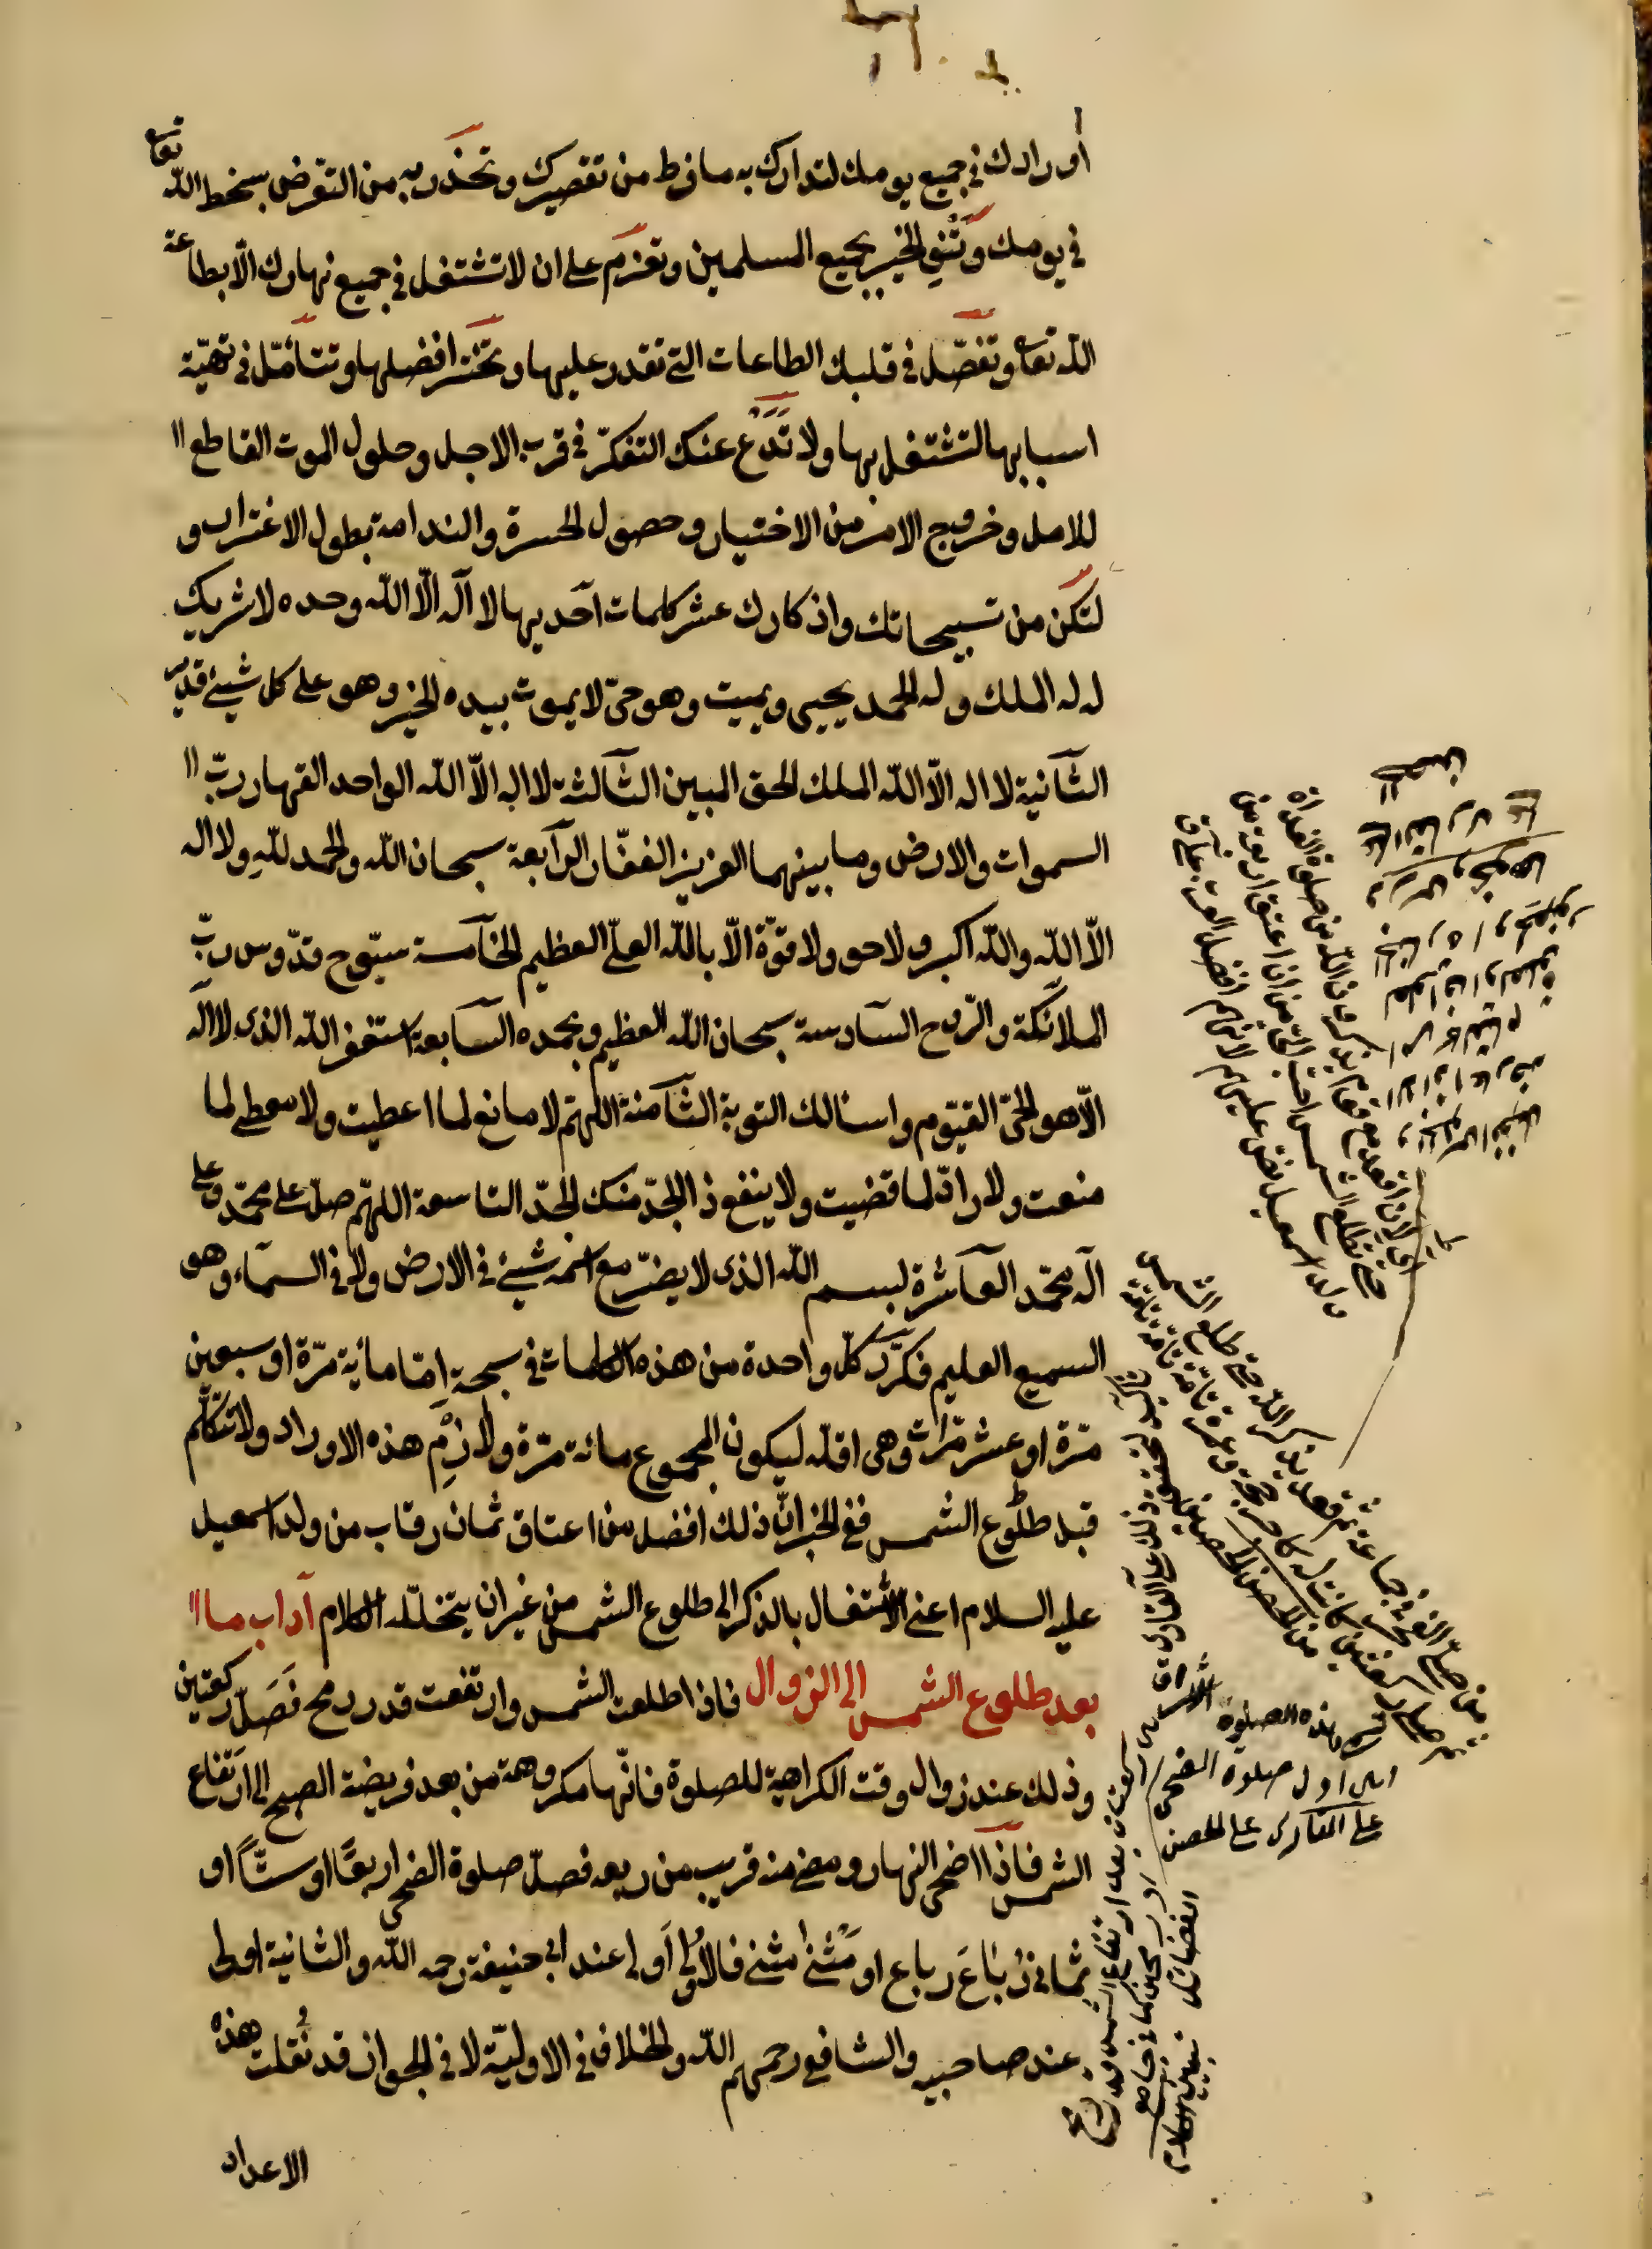 أورادك في جميع يومك لتدارك به ما فرط من تقصيرك وتحذر به من التعرض بسخط الله تعا
في يومك وتنوي الخير بجميع المسلمين وتعزم على ان لا تشتغل في جميع نهارك الا بطاعة
الله تعا وتفصّل في قلبك الطاعات التي تقدر عليها وتختر افضلها وتتأمّل في تهيّة
اسبابها لتشتغل بها ولا تدع عنك التفكر في قرب الاجل وحلول الموت القاطع
للامل وخروج الامر من الاختيار وحصول الحسرة والندامة بطول الاغترار و
لتكن من تسبيحاتك واذكارك عشر كلمات احديها لا اله الّا الله وحده لا شريك
له له الملك وله الحمد يحيى ويميت وهو حيّ لا يموت بيده الخير وهو على كل شيئ قدير
الثانية لا اله الّا الله الملك الحق المبين الثالثة لا اله الاّ الله الواحد القهار ربّ
السموات والارض وما بينهما العزيز الغفّار الرابعة سبحان الله والحمد للهِ ولا اله
الاّ الله والله اكبر ولا حول ولا قوّة الاّ بالله العليّ العظيم الخامسة سبّوح قدّوس ربّ
الملائكة والرّوح السادسة سبحان الله العظيم وبحمده السابعة استغفر الله الذى لا اله
الاّ هو الحيّ القيّوم واسئالك التوبة الثامنة اللهمّ لا مانع لما اعطيت ولا معطى لما
منعت ولا رادّ لما قضيت ولا ينفع ذا الجدّ منك الجدّ التاسعة اللهمّ صلّ على محمّد وعلى
آله محمّد العاشرة بسم الله الذى لا يضرّ مع اسمه شيئ في الارض ولا في السماء وهو
السميع العليم فكرّر كلّ واحدة من هذه الكلمات في سبحة امّا مائية مرّة او سبعين
مرّة او عشر مرّات وهى اقلّه ليكون المجموع مائة مرّة ولازم هذه الاوراد ولا تتكلّم
قبل طلوع الشمس ففي الخبر انّ ذلك افضل من اعتاق ثمان رقاب من ولد اسمعيل
عليه السلام اعنى الاشتغال بالذكر الى طلوع الشمس من غير ان يتخلّله الكلام آداب ما
بعد طلوع الشمس الى الزوال فاذا طلعت الشمس وارتفعت قدر رمح فَصَلّ ركعتين
وذلك عند زوال وقت الكراهية للصلوة فانّها مكروهة من بعد فريضة الصبح الى ارتفاع
الشمس فاذا اضحى النهار ومضى منه قريب من ربعه فصلّ صلوة الضحى اربعًا او ستًّا او
ثمانى رُبَاعَ رباع او مَثْنى مثنى فالاولى اولى عند ابى حنيفة رحمه الله والثانية اولى
عند صاحبيه والشافعى رحمهم الله والخلاف في الاوليّة لا في الجواز قد نُقلت هذه
الاعداد
لان اقعد مع قوم يذكرون الله من صلوة الغداة
حتى تطلع الشمس احبّ اليّ من ان اعتق اربعة من
ولد اسمعيل
من صلّى الفجر في جماعة ثم قعد يذكر الله حتى طلع الشمس
ثم صلى ركعتين كانت له كاجر حجة وعمرة تامّة تامّة تامّة
هذه الصلوة
اى اول صلوة الضحى
على القارى على الحصن